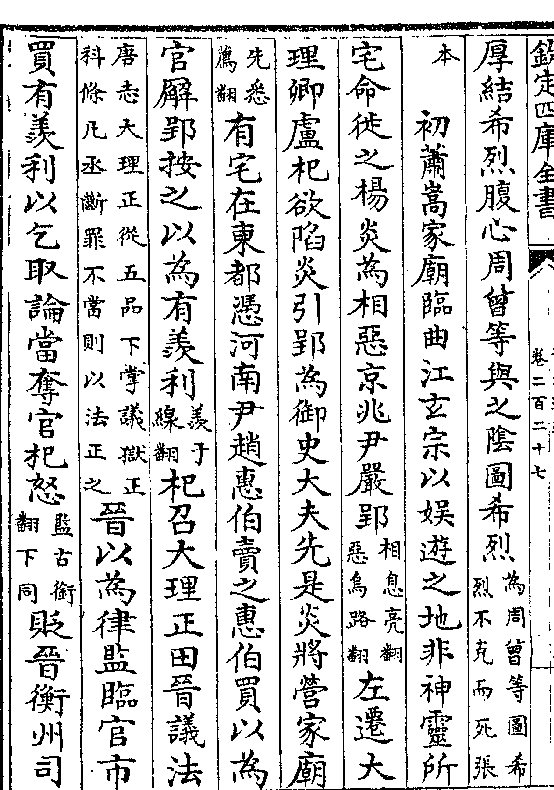 欽定四庫全書
卷二百二十七
厚結希烈腹心周曾等與之陰圖希烈為周曾等圖希烈不克而死張
本 初蕭嵩家廟臨曲江玄宗以娛遊之地非神靈所
宅命徙之楊炎為相惡京兆尹嚴郢相息亮翻惡烏路翻左遷大
理卿盧杞欲陷炎引郢為御史大夫先是炎將營家廟
先悉薦翻有宅在東都憑河南尹趙惠伯賣之惠伯買以為
官廨郢按之以為有羨利羨于線翻杞召大理正田晉議法
唐志大理正從五品下掌議獄正科條凡丞斷罪不當則以法正之晉以為律監臨官市
買有羨利以乞取論當奪官杞怒監古銜翻下同貶晉衡州司